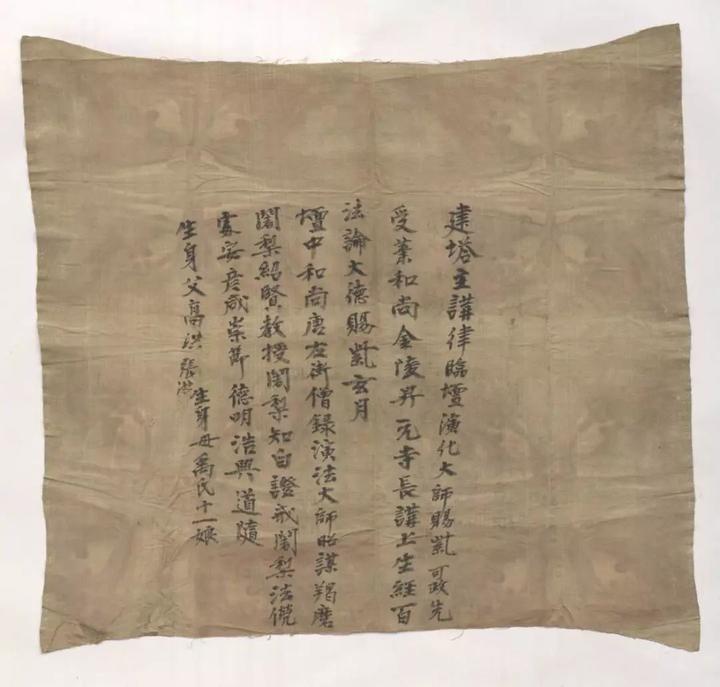 建塔主講律臨壇演化大師賜紫可政先
受業和尚金陵昇元寺長講上生經百
法論大德賜紫玄月
壇中和尚唐右街僧録演法大師昭謀羯磨
闍梨紹賢教授闍梨知白證戒闍梨法儼
處安彥成崇節德明浩興道隨
生身父高洪張澄
生身母禹氏十一娘